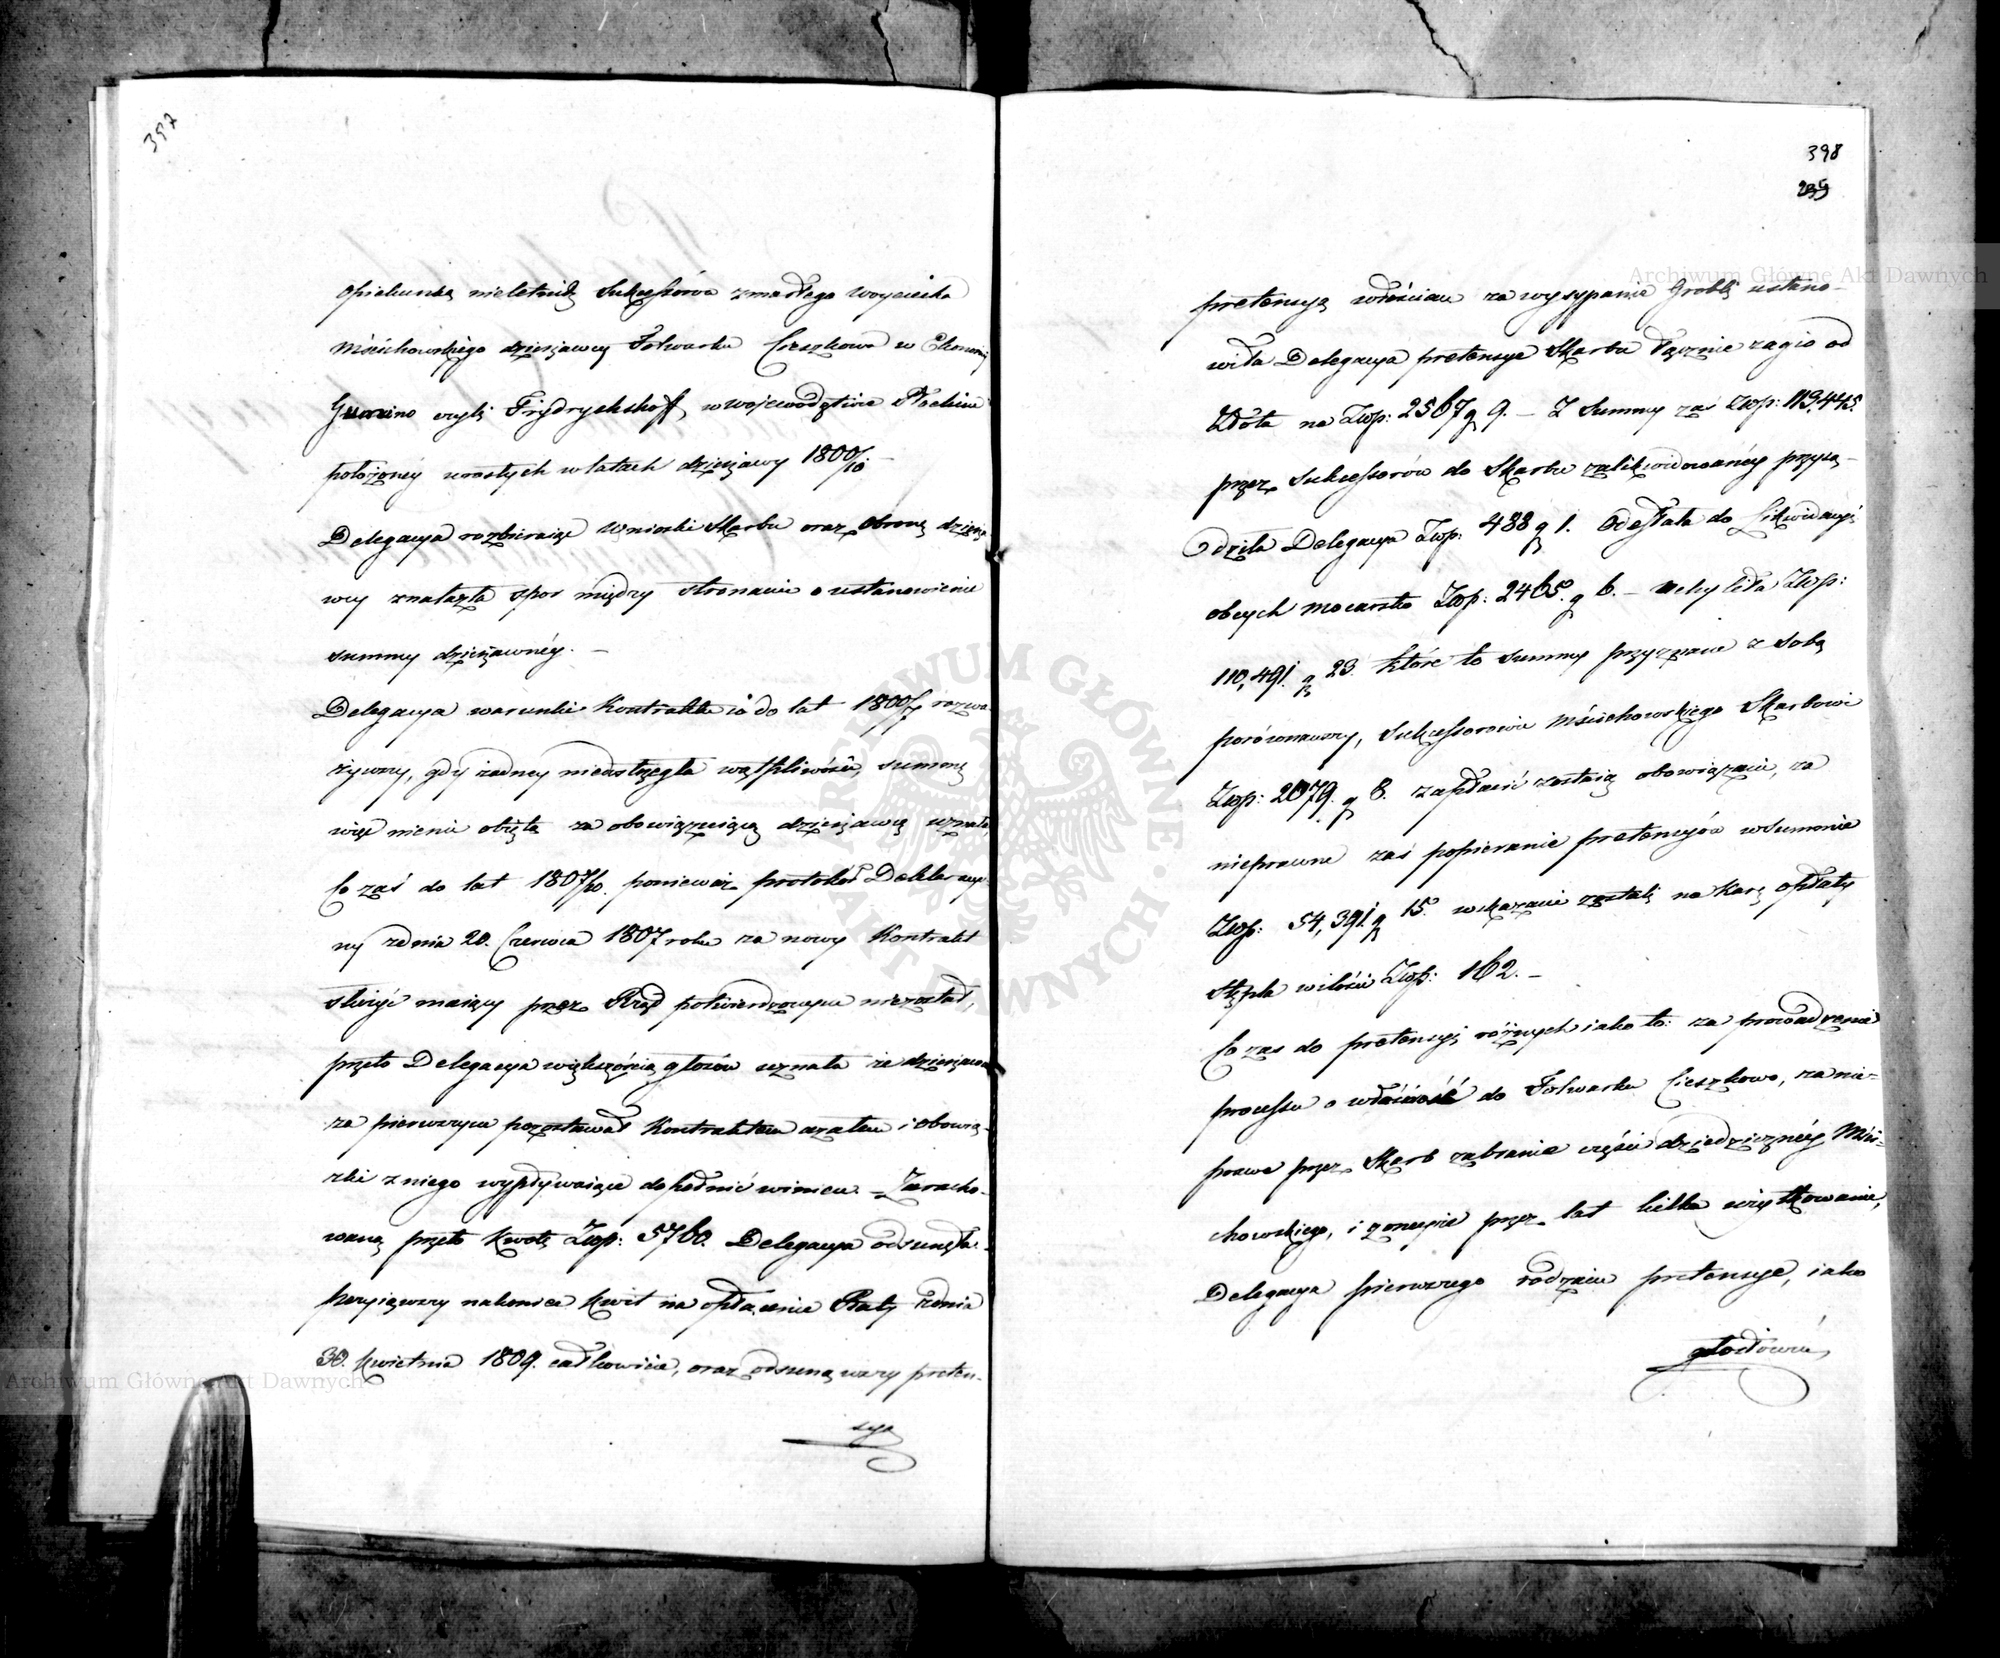 397
opiekunką nieletnich Sukcessorów zmarłego Woyciecha
Mścichowskiego dzierżawcy Folwarku Cieszkowo w Ekonomij
Gumino czyli Frydrychshoff, w wojewodztwie Płockim
położoney urosłych w latach dzierżawy 1800/10. –
Delegacya rozbieraiąc Wnioski Skarbu oraz obronę dzierża
wcy znalazła spor między stronami o ustanowienie
summy dzierżawnéy. –
Delegacya warunki Kontraktu co do lat 1800/7 rozwa
żywszy, gdy żadney niedostrzegła wątpliwości, summę
więc niemi obiętą za obowiązuiącą dzierżawcę uznała,
Co zaś do lat 1807/10. ponieważ protokół Deklaracyi
ny z dnia 20. Czerwca 1807 roku za nowy Kontrakt
służyć maiący przez Rząd potwierdzonym niezostał,
przeto Delegacya większością głosów uznała że dzierżawca
za pierwszym pozostawał Kontraktem czasem i obowią-
zki z niego wypływaiące dopełnić winien. – Zaracho-
waną przeto kwotę Złp: 5760. Delegacya odsunęła.
Przyiąwszy nakoniec kwit na opłacenie Raty z dnia
30. Kwietnia 1809. całkowicie, oraz odsunąwszy preten-
syą
398
299
pretensyą włościan za wysypanie Grobli ustano-
wiła Delegacya pretensye Skarbu łącznie z agio od
Złota na Złp: 2567 g 9. – Z Summy zaś Złp: 113,445.
przez Sukcessorów do Skarbu zalikwidowanéy przysą-
dziła Delegacya Złp: 488 g 1. Odesłała do Likwidacyi
obcych mocarstw Złp: 2465. g 6. – uchyliła Złp:
110,491. g 23. które to Summy przyznane z sobą
porównawszy, Sukcessorowie Mścichowskiego Skarbowi
Złp: 2079. g 8. zapłacić zostaią obowiązani, za
nieprawne zaś popieranie pretensyów w Summie
Złp: 54,391. g 15. wskazani zostali na karę opłaty
Stępla w ilości Złp: 162. –
Co zas do pretensyi różnych iako to: za prowadzenie
processu o własność do Folwarku Cieszkowo, za nie-
prawe przez Skarb zabranie części dziedziczney Mści-
chowskiego, i z oneyże przez lat kilka użytkowanie,
Delegacya pierwszego rodzaiu pretensye, iako
gołosłowne
Archiwum Główne Akt Dawnych
Archiwum Główne Akt Dawnych
ARCHIWUM GŁÓWNE · AKT DAWNYCH ·